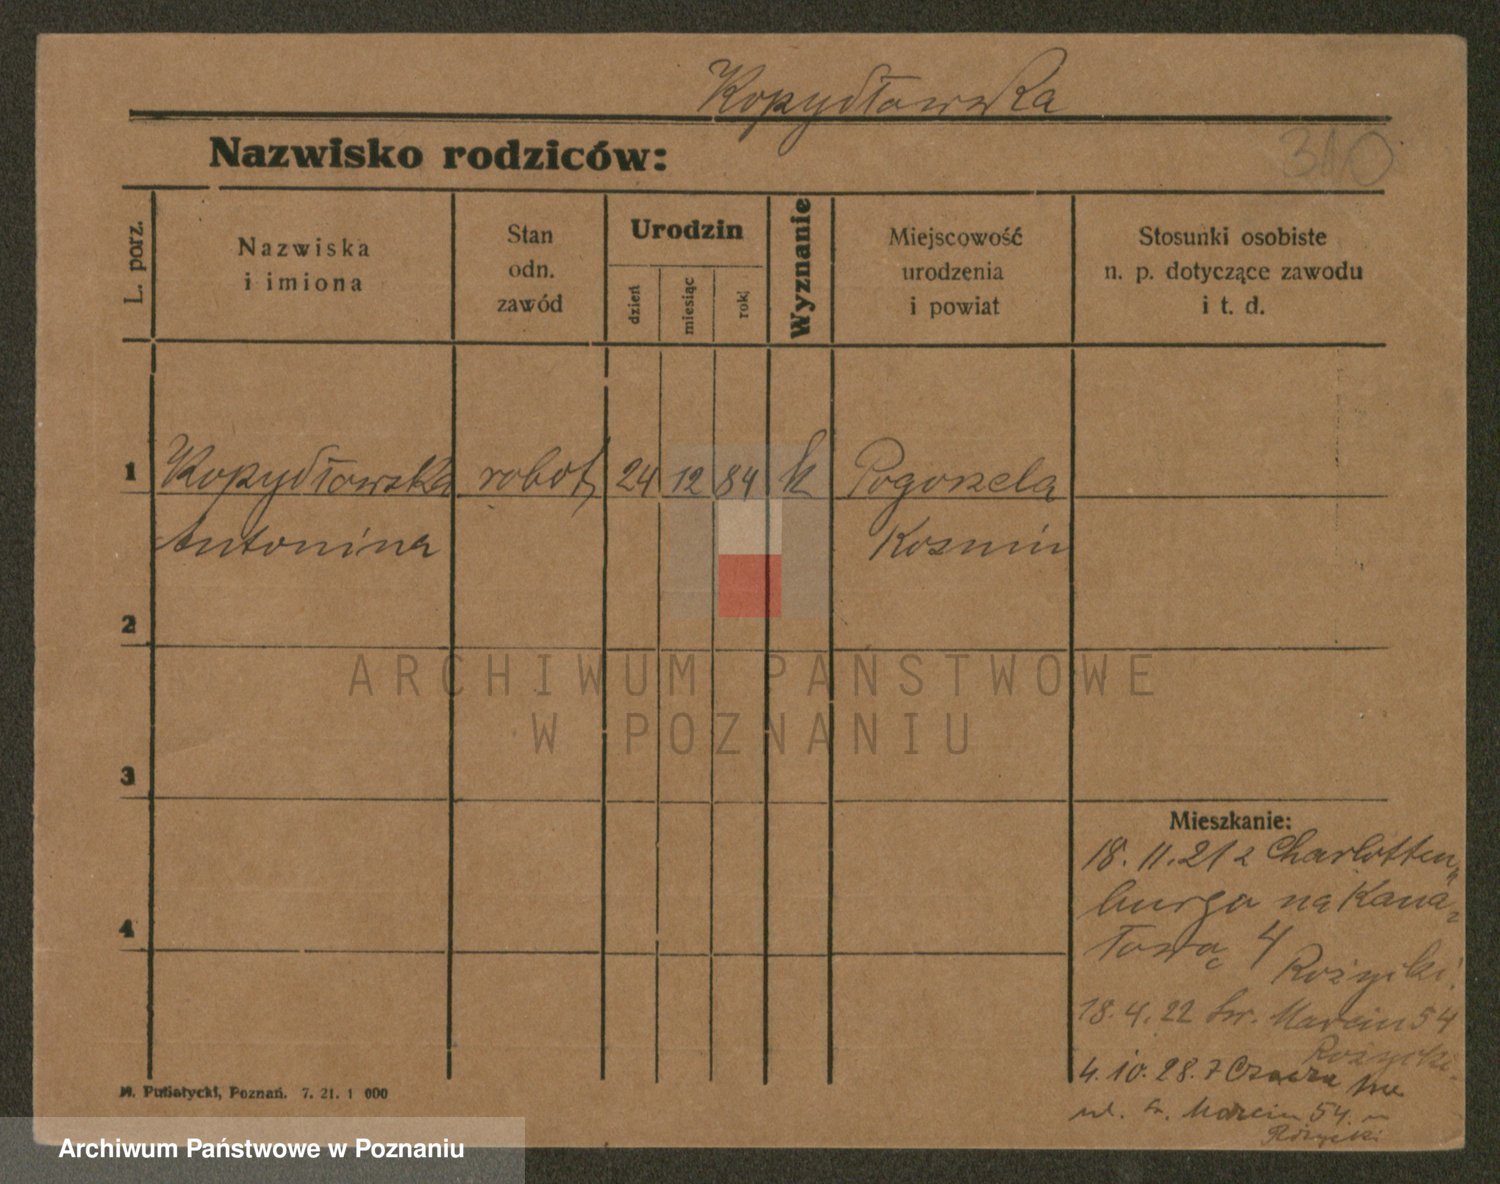 Kopydłowska
Nazwisko rodziców:
310
L. porz.
Nazwiska
i imiona
Stan
odn.
zawód
Urodzin
dzień
miesiąc
rok
Wyznanie
Miejscowość
urodzenia
i powiat
Stosunki osobiste
n. p. dotyczące zawodu
i t. d.
1 Kopydłowska robot 24 12 84 k Pogorzela
Antonina Kozmin
2
ARCHIWUM PAŃSTWOWE
W POZNANIU
3
Mieszkanie:
18.11.21 z Charlotten
burga na Kana
4
łową 4
Rożycki
18.4.22 Św. Marcin 54
Rożycki
4.10.28. z Czacza
ul. Św. Marcin 54.
Różycki
M. Putiatycki, Poznań. 7. 21. 1 000
Archiwum Państwowe w Poznaniu